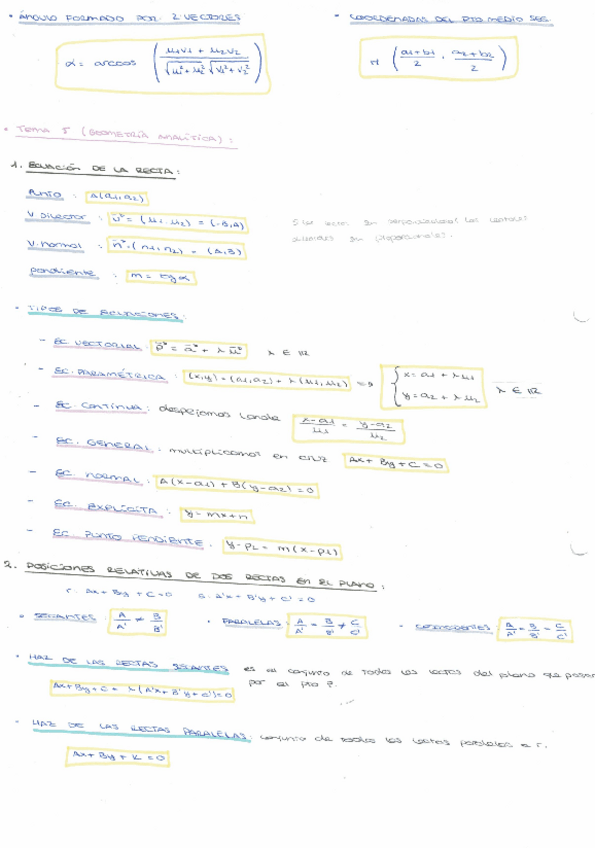 • ÁNGULO FORMADO POR 2 VECTORES
• COORDENADAS DEL PTO MEDIO SEG.
α = arccos ( (u1v1 + u2v2) / (√u1² + u2² √v1² + v2²) )
M ( (a1+b1)/2 , (a2+b2)/2 )
• TEMA 5 (GEOMETRÍA ANALÍTICA):
1. ECUACIÓN DE LA RECTA:
Punto : A(a1,a2)
V. Director : ū = (u1, u2) = (-B,A)
V. normal : n⃗ = (n1, n2) = (A,B)
pendiente : m = tg α
• TIPOS DE ECUACIONES:
- EC. VECTORIAL: p⃗ = a⃗ + λ u⃗ λ ∈ ℝ
- EC. PARAMÉTRICA: (x,y) = (a1,a2) + λ (u1,u2) => { x = a1 + λ u1 y = a2 + λ u2 λ ∈ ℝ
- EC. CONTINUA: despejamos lambda (x-a1)/u1 = (y-a2)/u2
- EC. GENERAL: multiplicamos en cruz Ax + By + C = 0
- EC. NORMAL: A(x-a1) + B(y-a2) = 0
- EC. EXPLÍCITA: y = mx + n
- EC. PUNTO PENDIENTE: y - p2 = m(x - p1)
2. POSICIONES RELATIVAS DE DOS RECTAS EN EL PLANO:
r: Ax + By + C = 0 s: A'x + B'y + C' = 0
• SECANTES: A/A' ≠ B/B' • PARALELAS: A/A' = B/B' ≠ C/C' - COINCIDENTES: A/A' = B/B' = C/C'
• HAZ DE LAS RECTAS SECANTES es el conjunto de todas las rectas del plano que pasan
por el pto P.
Ax + By + C + λ (A'x + B'y + C') = 0
• HAZ DE LAS RECTAS PARALELAS: conjunto de todas las rectas paralelas a r.
Ax + By + K = 0